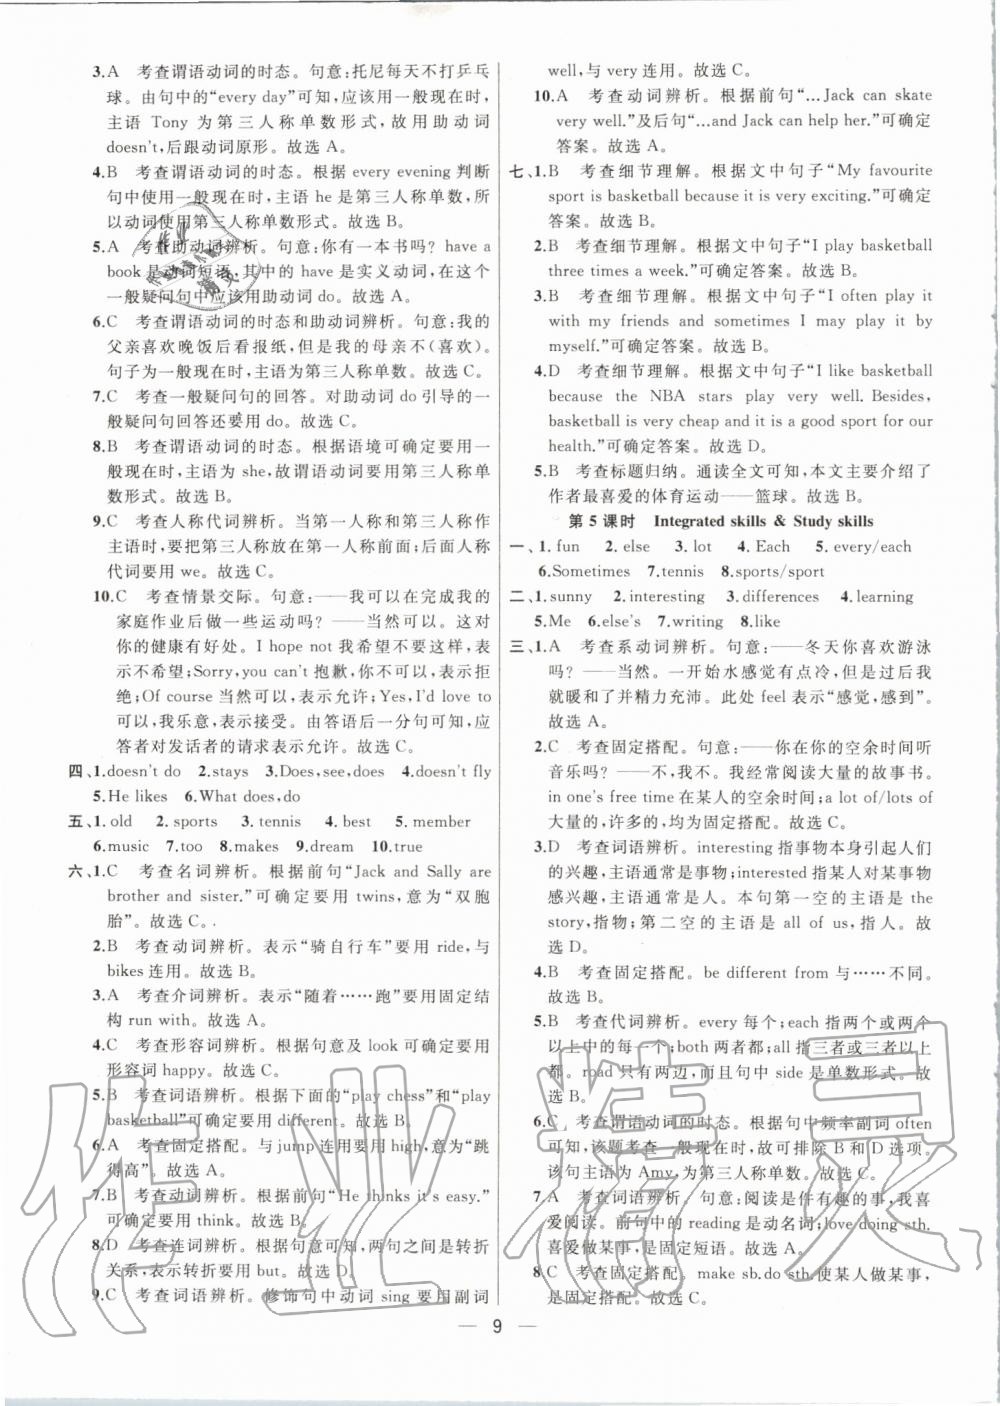 3.A 考查谓语动词的时态。句意:托尼每天不打乒乓
球。由句中的“every day”可知,应该用一般现在时,
主语 Tony 为第三人称单数形式,故用助动词
doesn't,后跟动词原形。故选 A。
4.B 考查谓语动词的时态。根据 every evening 判断
句中使用一般现在时,主语 he 是第三人称单数,所
以动词使用第三人称单数形式。故选 B。
5.A 考查助动词辨析。句意:你有一本书吗? have a
book 是动词短语,其中的 have 是实义动词,在这个
一般疑问句中应该用助动词 do。故选 A。
6.C 考查谓语动词的时态和助动词辨析。句意:我的
父亲喜欢晚饭后看报纸,但是我的母亲不(喜欢)。
句子为一般现在时,主语为第三人称单数。故选 C。
7.C 考查一般疑问句的回答。对助动词 do 引导的一
般疑问句回答还要用 do。故选 C。
8.B 考查谓语动词的时态。根据语境可确定要用一
般现在时,主语为 she,故谓语动词要用第三人称单
数形式。故选 B。
9.C 考查人称代词辨析。当第一人称和第三人称作
主语时,要把第三人称放在第一人称前面;后面人称
代词要用 we。故选 C。
10.C 考查情景交际。句意:——我可以在完成我的
家庭作业后做一些运动吗? ——当然可以。这对
你的健康有好处。I hope not 我希望不要这样,表
示不希望;Sorry,you can't 抱歉,你不可以,表示拒
绝;Of course 当然可以,表示允许;Yes,I'd love to
可以,我乐意,表示接受。由答语后一分句可知,应
答者对发话者的请求表示允许。故选 C。
四、1.doesn't do 2.stays 3.Does,see,does 4.doesn't fly
5.He likes 6.What does,do
五、1.old 2.sports 3.tennis 4.best 5.member
6.music 7.too 8.makes 9.dream 10.true
六、1.C 考查名词辨析。根据前句“Jack and Sally are
brother and sister.”可确定要用 twins,意为“双胞
胎”。故选 C。
2.B 考查动词辨析。表示“骑自行车”要用 ride,与
bikes 连用。故选 B。
3.A 考查介词辨析。表示“随着……跑”要用固定结
构 run with。故选 A。
4.C 考查形容词辨析。根据句意及 look 可确定要用
形容词 happy。故选 C。
5.B 考查词语辨析。根据下面的“play chess”和“play
basketball”可确定要用 different。故选 B。
6.A 考查固定搭配。与 jump 连用要用 high,意为“跳
得高”。故选 A。
7.B 考查动词辨析。根据前句“He thinks it's easy.”
可确定要用 think。故选 B。
8.D 考查连词辨析。根据句意可知,两句之间是转折
关系,表示转折要用 but。故选 D。
9.C 考查词语辨析。修饰句中动词 sing 要用副词
well,与 very 连用。故选 C。
10.A 考查动词辨析。根据前句“...Jack can skate
very well.”及后句“...and Jack can help her.”可确定
答案。故选 A。
七、1.B 考查细节理解。根据文中句子“My favourite
sport is basketball because it is very exciting.”可确定
答案。故选 B。
2.B 考查细节理解。根据文中句子“I play basketball
three times a week.”可确定答案。故选 B。
3.B 考查细节理解。根据文中句子“I often play it
with my friends and sometimes I may play it by
myself.”可确定答案。故选 B。
4.D 考查细节理解。根据文中句子“I like basketball
because the NBA stars play very well. Besides,
basketball is very cheap and it is a good sport for our
health.”可确定答案。故选 D。
5.B 考查标题归纳。通读全文可知,本文主要介绍了
作者最喜爱的体育运动——篮球。故选 B。
第 5 课时 Integrated skills & Study skills
一、1. fun 2. else 3. lot 4. Each 5. every/each
6.Sometimes 7.tennis 8.sports/sport
二、1.sunny 2.interesting 3.differences 4.learning
5.Me 6.else's 7.writing 8.like
三、1.A 考查系动词辨析。句意:——冬天你喜欢游泳
吗? ——当然。一开始水感觉有点冷,但是过后我
就暖和了并精力充沛。此处 feel 表示“感觉,感到”。
故选 A。
2.C 考查固定搭配。句意:——你在你的空余时间听
音乐吗? ——不,我不。我经常阅读大量的故事书。
in one's free time 在某人的空余时间;a lot of/lots of
大量的,许多的,均为固定搭配。故选 C。
3.D 考查词语辨析。interesting 指事物本身引起人们
的兴趣,主语通常是事物;interested 指某人对某事物
感兴趣,主语通常是人。本句第一空的主语是 the
story,指物;第二空的主语是 all of us,指人。故
选 D。
4.B 考查固定搭配。be different from 与……不同。
故选 B。
5.B 考查代词辨析。every 每个;each 指两个或两个
以上中的每一个;both 两者都;all 指三者或三者以上
都。road 只有两边,而且句中 side 是单数形式。故
选 B。
6.C 考查谓语动词的时态。根据句中频率副词 often
可知,该题考查一般现在时,故可排除 B 和 D 选项。
该句主语为 Amy,为第三人称单数。故选 C。
7.A 考查词语辨析。句意:阅读是件有趣的事,我喜
爱阅读。前句中的 reading 是动名词;love doing sth.
喜爱做某事,是固定短语。故选 A。
8.C 考查固定搭配。make sb. do sth.使某人做某事,
是固定搭配。故选 C。
— 9 —
作业精灵